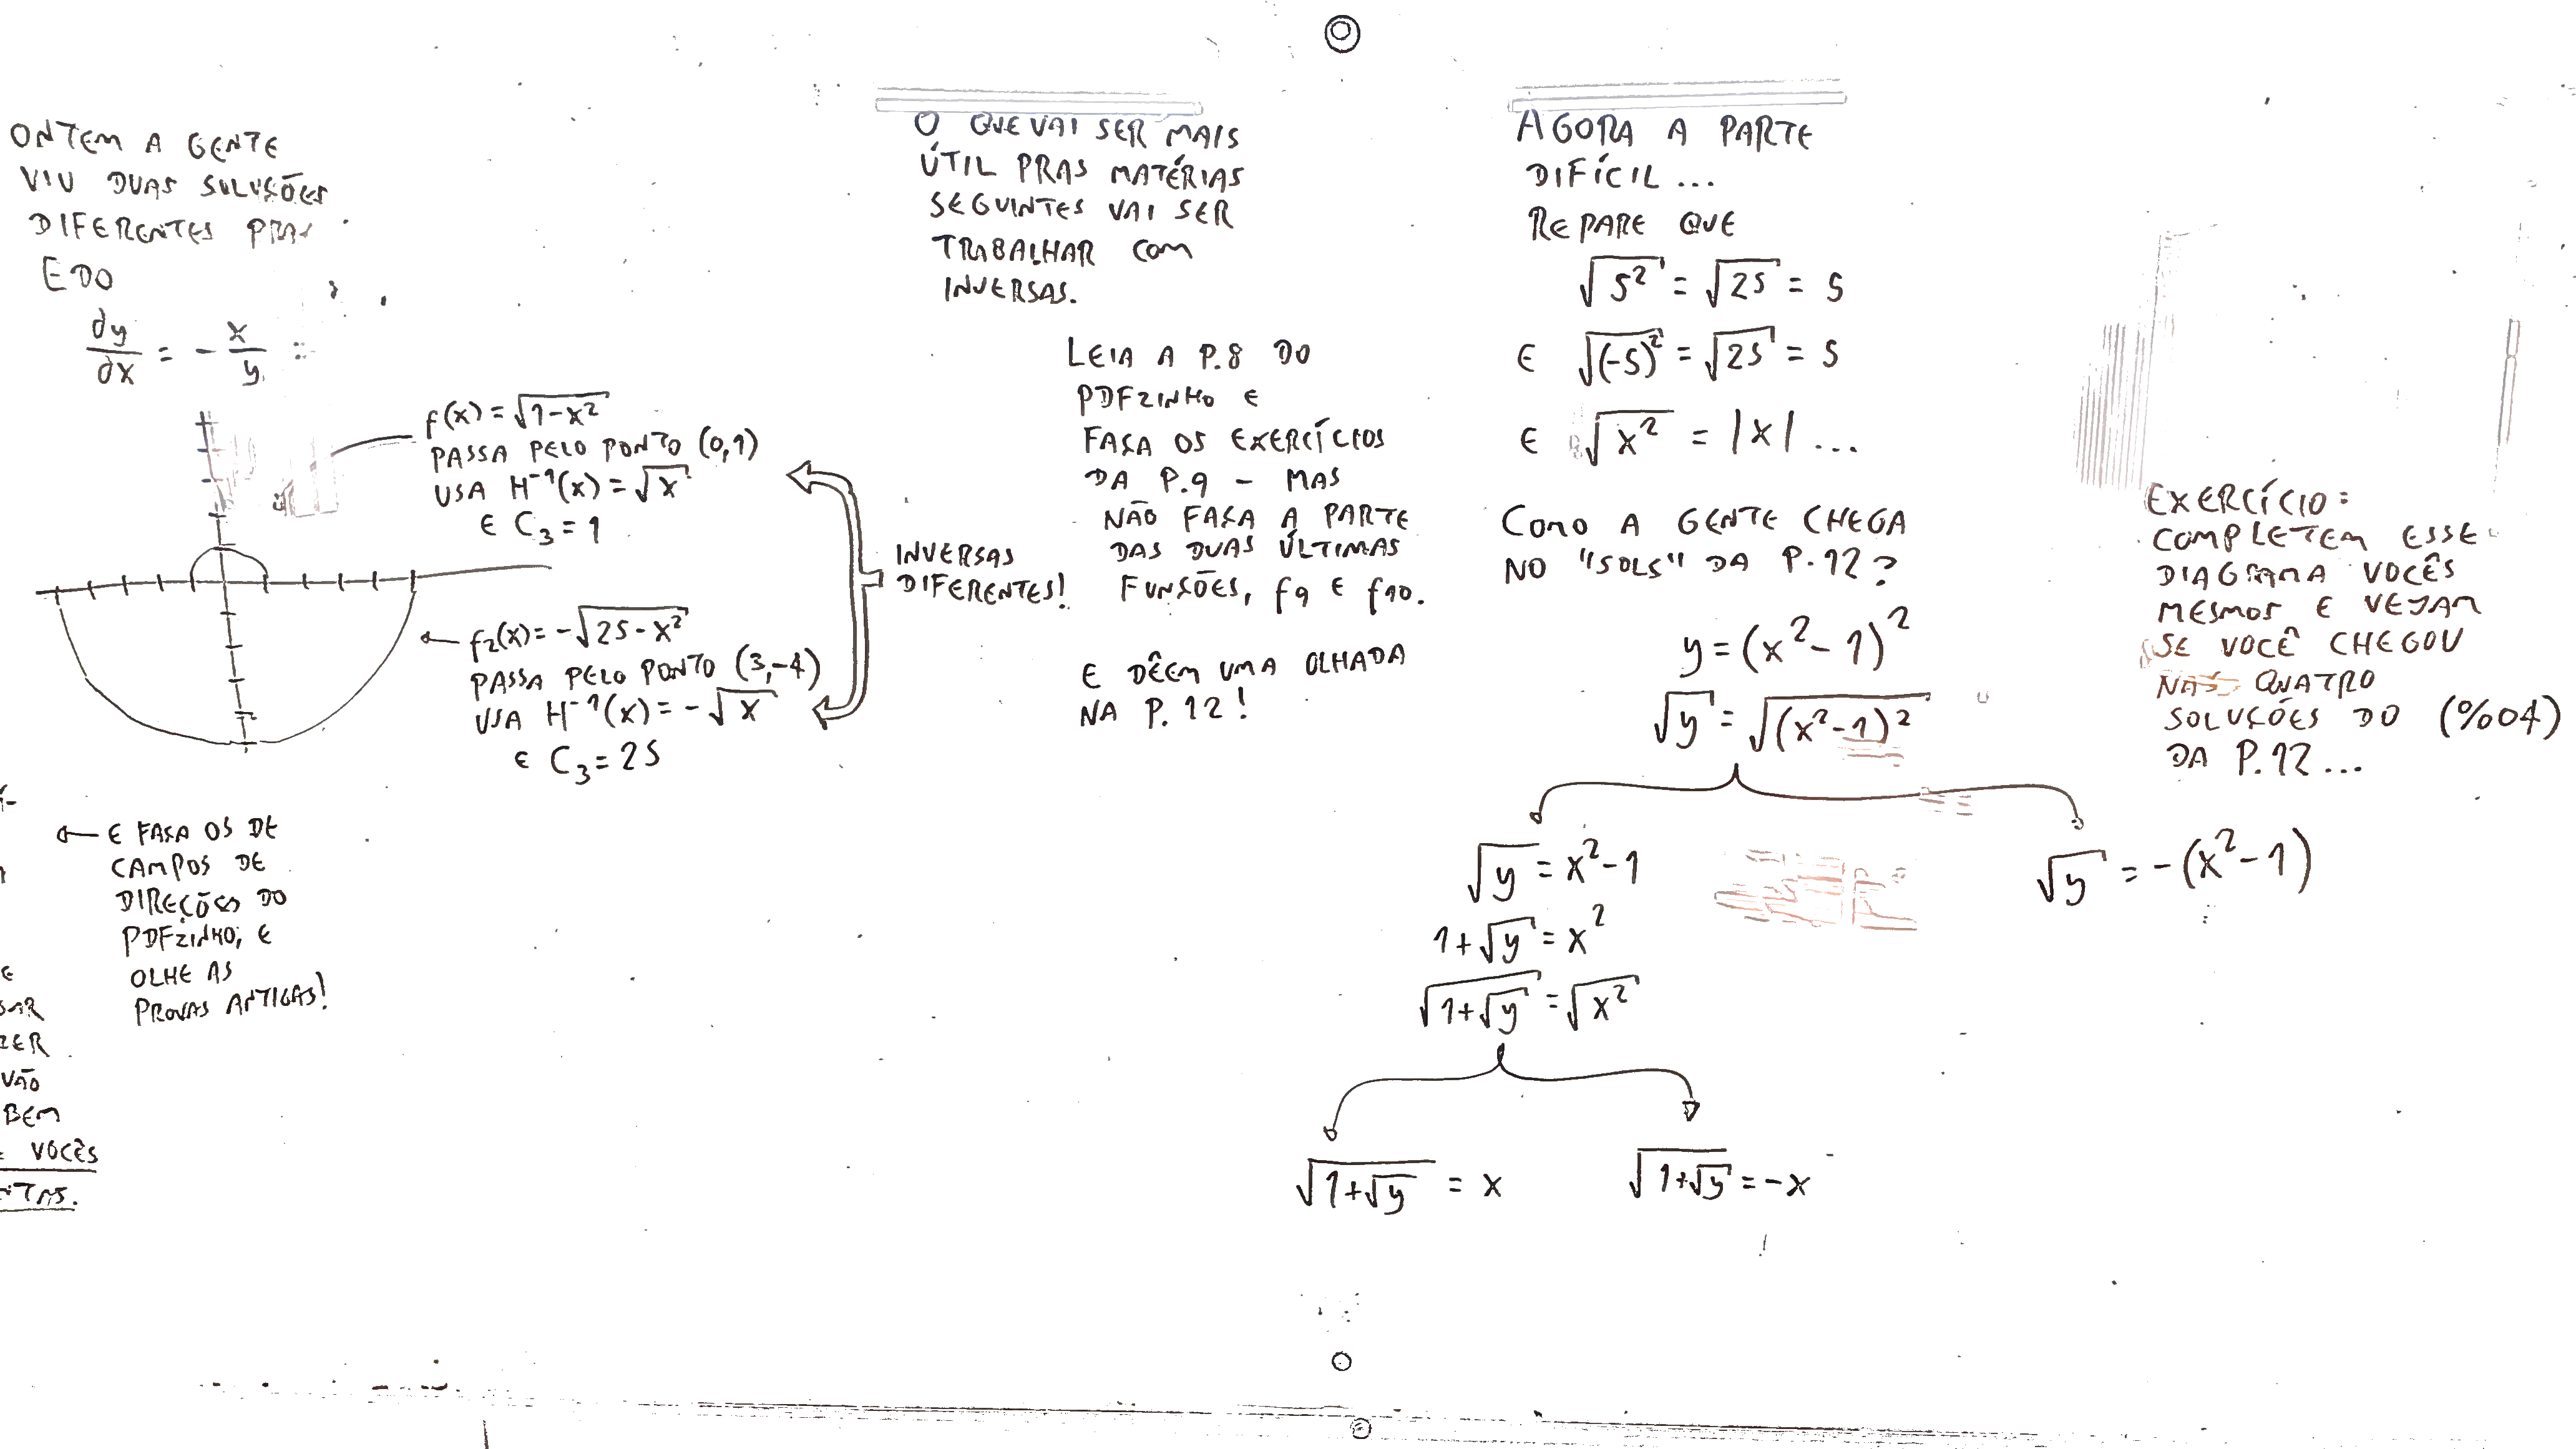 ONTEM A GENTE
VIU DUAS SOLUÇÕES
DIFERENTES PRA
EDO
dy/dx = - x/y :
f(x) = √(1-x²)
PASSA PELO PONTO (0,1)
USA H⁻¹(x) = √x
E C₃ = 1
f₂(x) = -√(25-x²)
PASSA PELO PONTO (3,-4)
USA H⁻¹(x) = -√x
E C₃ = 25
INVERSAS
DIFERENTES!
E FAÇA OS DE
CAMPOS DE
DIREÇÕES DO
PDFZINHO, E
OLHE AS
PROVAS ANTIGAS!
E
VÃO
BEM
VOCÊS
O QUE VAI SER MAIS
ÚTIL PRAS MATÉRIAS
SEGUINTES VAI SER
TRABALHAR COM
INVERSAS.
LEIA A P.8 DO
PDFZINHO E
FAÇA OS EXERCÍCIOS
DA P.9 - MAS
NÃO FAÇA A PARTE
DAS DUAS ÚLTIMAS
FUNÇÕES, f9 E f10.
E DÊEM UMA OLHADA
NA P. 12!
AGORA A PARTE
DIFÍCIL...
REPARE QUE
√(5²) = √25 = 5
E √((-5)²) = √25 = 5
E √(x²) = |x| ...
COMO A GENTE CHEGA
NO "SOLS" DA P.12?
y = (x²-1)²
√y = √((x²-1)²)
√y = x²-1
1+√y = x²
√(1+√y) = √(x²)
√(1+√y) = x
√(1+√y) = -x
√y = -(x²-1)
EXERCÍCIO:
COMPLETEM ESSE
DIAGRAMA VOCÊS
MESMOS E VEJAM
SE VOCÊ CHEGOU
NAS QUATRO
SOLUÇÕES DO (%o4)
DA P.12...